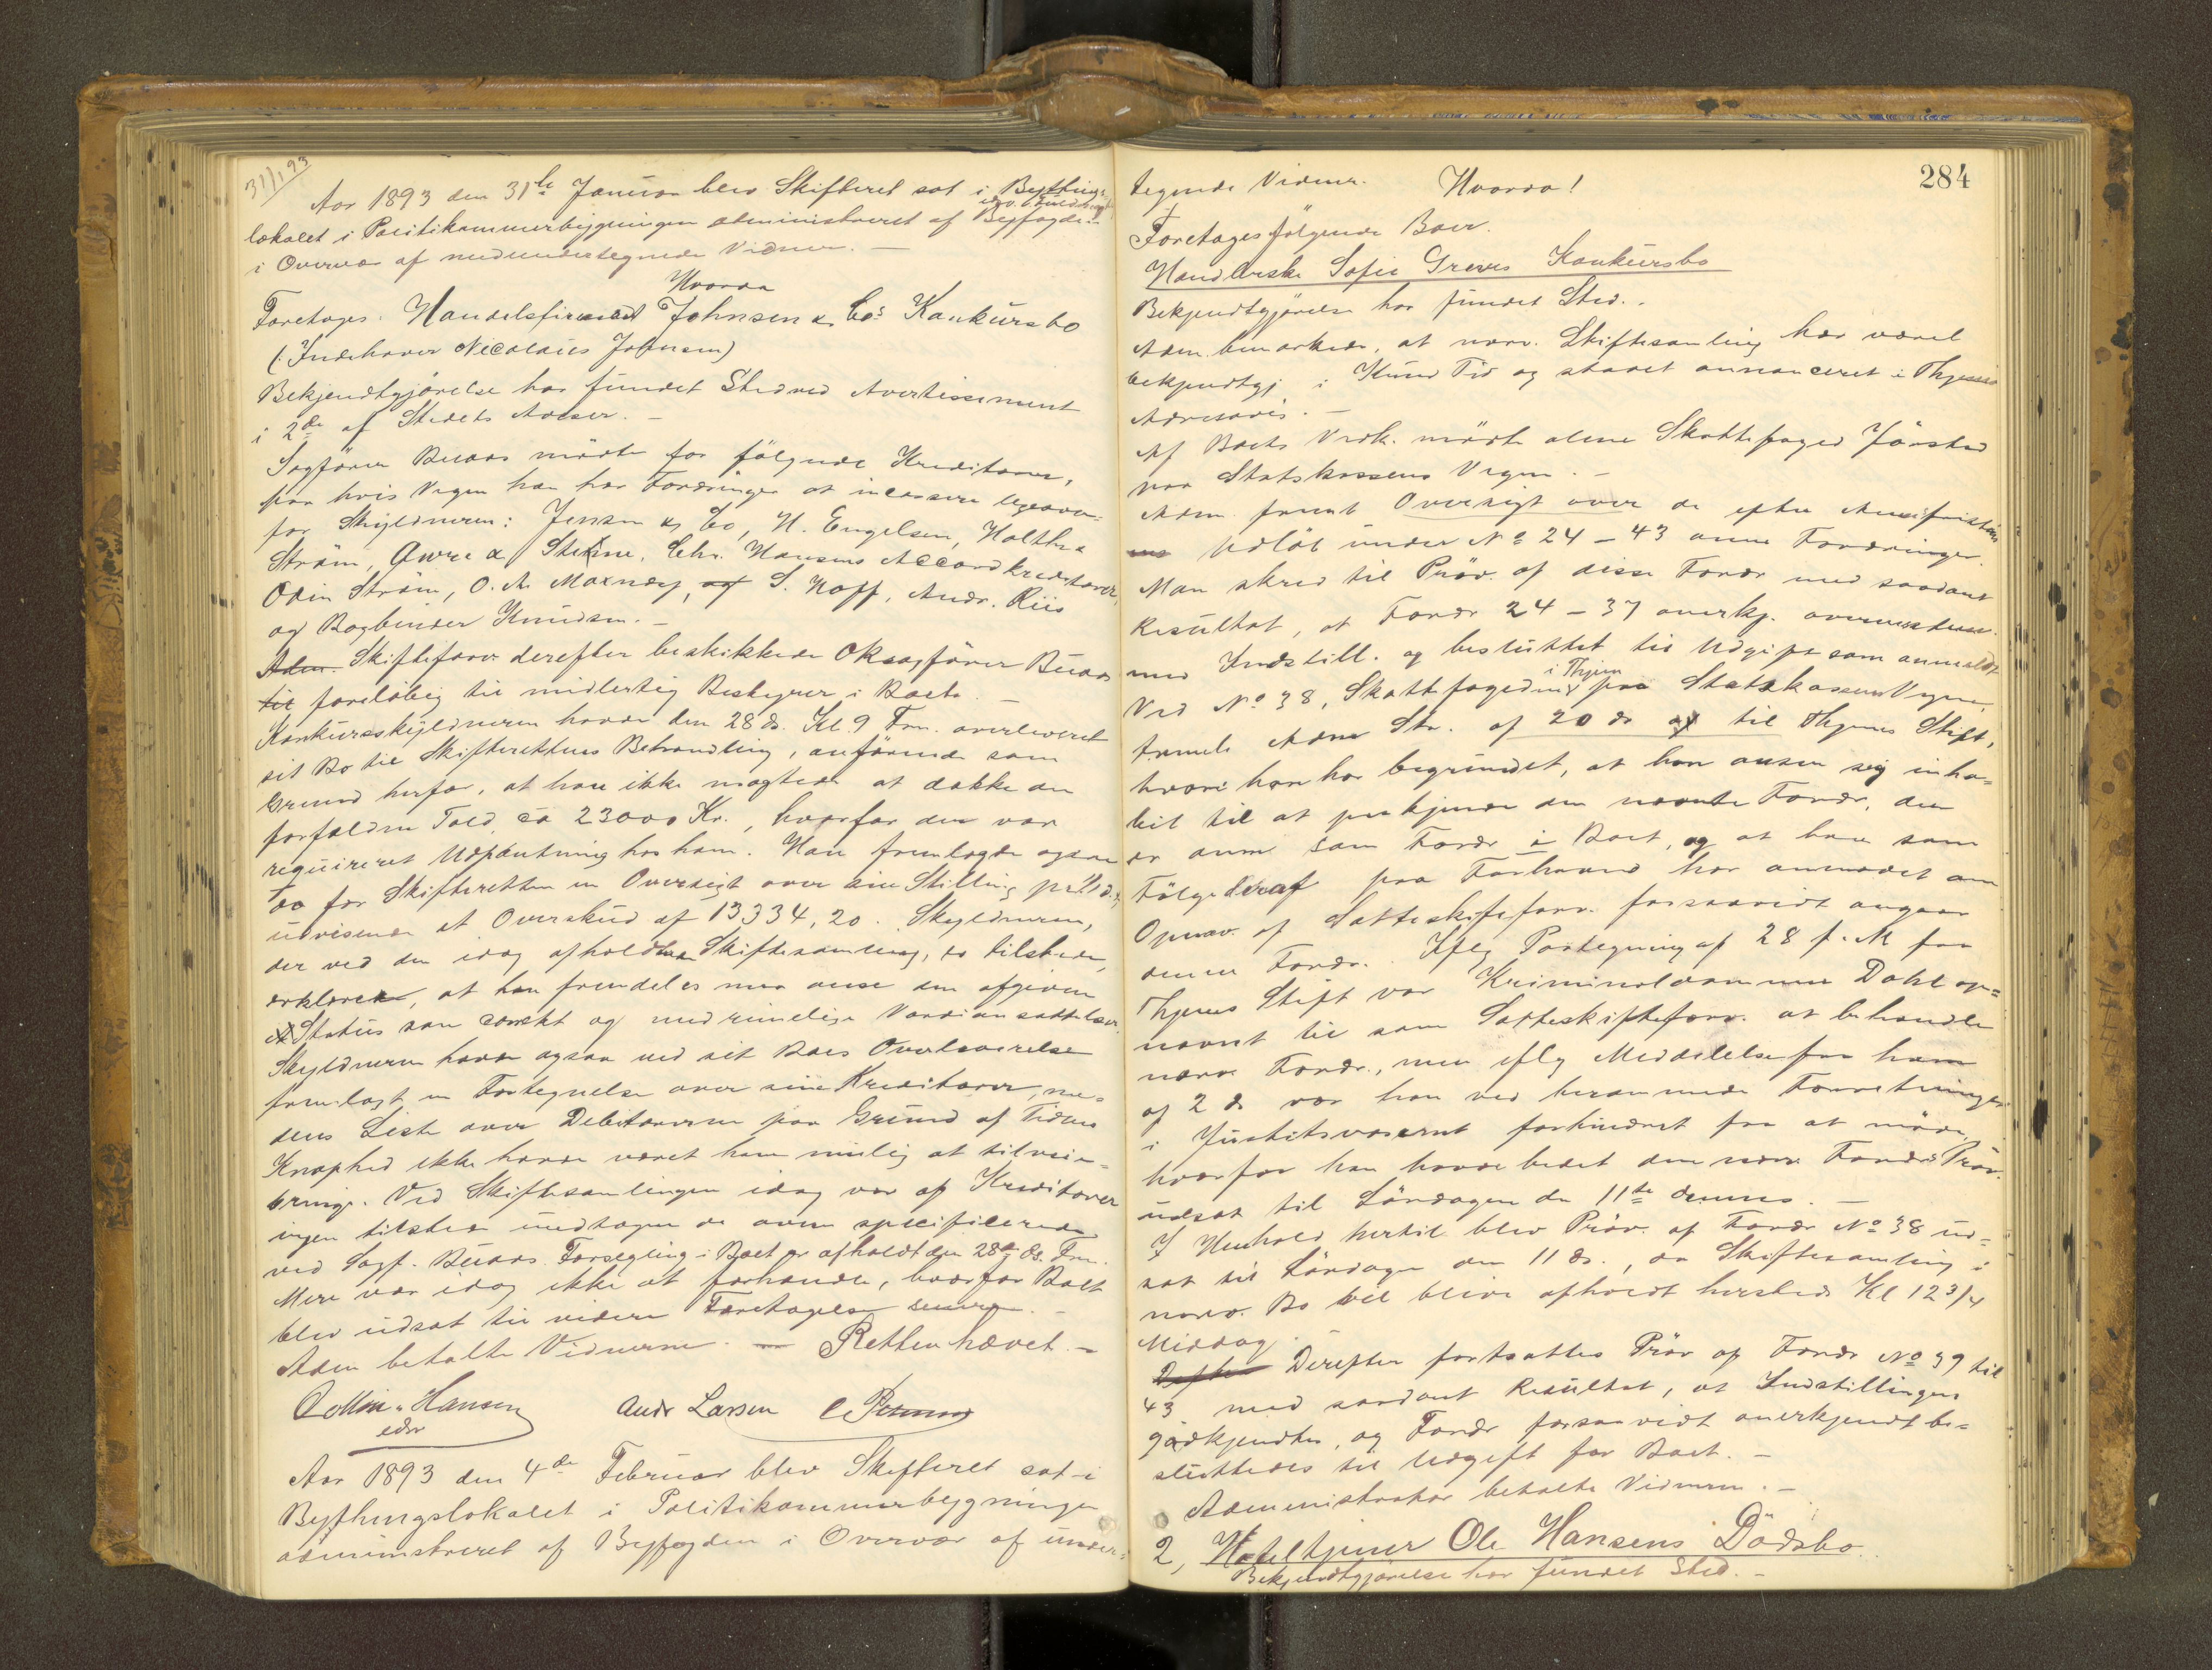 31/1 93
Aar 1893 den 31te Januar blev Skifteret sat i Bythings-
lokalet i Politikammerbygningen administreret af Byfogden
i Overvær af medundertegnede Vidner. —
Hvorda
Foretoges. Handelsfirmaet Johnsen & Co's Konkursbo
(: Indehaver Nicolaus Johnsen)
Bekjendtgjørelse har fundet Sted ved Avertissement
i 2de af Stedets Aviser. —
Sagfører Buaas mödte for fölgende Kreditorer,
paa hvis Vegne han har Fordringer at incassere ligeover-
for Skyldneren: Jensen & Co, H. Engelsen, Holth &
Ström, Gurre & Stene, Chr. Hansens Accordkreditorer,
Odin Ström, O. A. Moxnæs, S. Hoff, Andr. Riis
og Bogbinder Knudsen. —
Adm. Skifteforv. derefter beskikkede Oksagförer Buaas
til foreløbig til midlertidig Bestyrer i Boet.
Konkursskyldneren havde den 28 ds. Kl. 9 Fm. overleveret
sit Bo til Skifterettens Behandling, anförende som
Grund herfor, at han ikke magtede at dække den
forfaldne Told, ca 23000 Kr., hvorfor der var
requireret Udpantning hos ham. Han fremlagde ogsaa
da for Skifteretten en Oversigt over sin Stilling pr.
udvisende et Overskud af 13334,20. Skyldneren,
der ved den idag afholdte Skiftesamling, er tilstede,
erklærer, at han fremdeles maa anse den afgivne
Status som correkt og med rimelige Værdiansættelser.
Skyldneren havde ogsaa ved sit Boes Overleverelse
fremlagt en Fortegnelse over sine Kreditorer, me-
dens Liste over Debitorerne paa Grund af Tidens
Knaphed ikke havde været ham mulig at tilveie-
bringe. Ved Skiftesamlingen idag var af Kreditorer
ingen tilstede undtagen de oven specificerede
ved Sagf. Buaas. Forsegling i Boet er afholdt den 28de ds. Fm.
Mere var idag ikke at forhandle, hvorfor Boet
blev udsat til videre Foretagelse senere. —
Adm betalte Vidnerne. — Retten hævet. —
Collin-Hansen Andr Larsen
edsv
Aar 1893 den 4de Februar blev Skifteret sat i
Bythingslokalet i Politikammerbygningen
administreret af Byfogden i Overvær af under-
284
tegnede Vidner. Hvorda!
Foretoges fölgende Boer.
Handlerske Sofie Greves Konkursbo
Bekjendtgjörelse har fundet Sted..
Adm. bemærkede, at nærv. Skiftesamling har været
bekjendtgj i Kund Tid og stavet annonceret i Thjems
Adresseavis. —
Af Boets Vedk. mödte alene Skattefoged Jörstad
paa Statskassens Vegne. —
Adm. freml Oversigt over de efter Anmfristens
Udlöb under No 24 – 43 anm Fordringer.
Man skred til Pröv. af disse Fordr med saadant
Resultat, at Fordr 24 – 37 anerkj. overensstem.
med Indstill. og besluttet til Udgift som anmeldt
Ved No 38, Skattefogden i Thjem paa Statskassens Vegne,
fremla Adm Skr. af 20 ds til Thjems Stift,
hvori han har begrundet, at han anser sig inha-
bil til at paakjende den nævnte Fordr, der
er anm som Fordr i Boet, og at han som
Fölge deraf paa Forhaand har anmodet om
Opnæv. af Sætteskifteforv. forsaavidt angaar
denne Fordr. Iflg Paategning af 28 f. M fra
Thjems Stift var Kriminaldommer Dahl op-
nævnt til som Sætteskifteforv. at behandle
nævnte Fordr., men iflg Meddelelse fra ham
af 2 ds var han ved berammede Forretninger
i Justitsvæsenet forhindret fra at möde,
hvorfor han havde bedet den nævn Fordrs Pröv.
udsat til Lördagen den 11te dennes. —
I Henhold hertil blev Pröv. af Fordr No 38 ud-
sat til Lördagen den 11 ds., da Skiftesamling i
nærv. Bo vil blive afholdt hersteds Kl 12 3/4
Middag
Derefter fortsattes Pröv af Fordr No 39 til
43 med saadant Resultat, at Indstillingen
godkjendtes, og Fordr forsaavidt anerkjendt be-
sluttedes til Udgift for Boet. —
Administrator betalte Vidnern. —
2, Hoteltjener Ole Hansens Dödsbo
Bekjendtgjörelse har fundet Sted. —